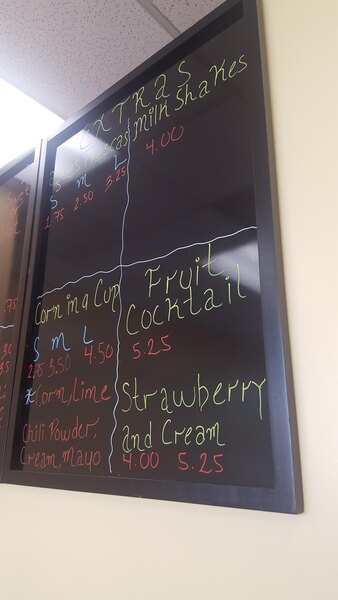 EXTRAS
aguas frescas
S m L
1.75 2.50 3.25
Milk Shakes
4.00
Corn in a Cup
S m L
2.75 3.50 4.50
Corn, Lime
Chili Powder,
Cream, mayo
Fruit
Cocktail
5.25
Strawberry
and Cream
4.00 5.25
.75